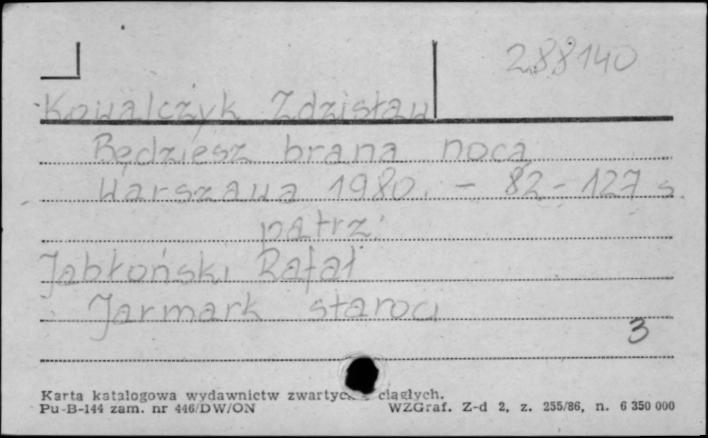 288140
Kowalczyk Zdzisław
Będziesz brana nocą
Warszawa 1980. - 82-127 s.
patrz:
Jabłoński Rafał
Jarmark staroci
3
Karta katalogowa wydawnictw zwartych i ciągłych.
Pu-B-144 zam. nr 446/DW/ON WZGraf. Z-d 2, z. 255/86, n. 6 350 000